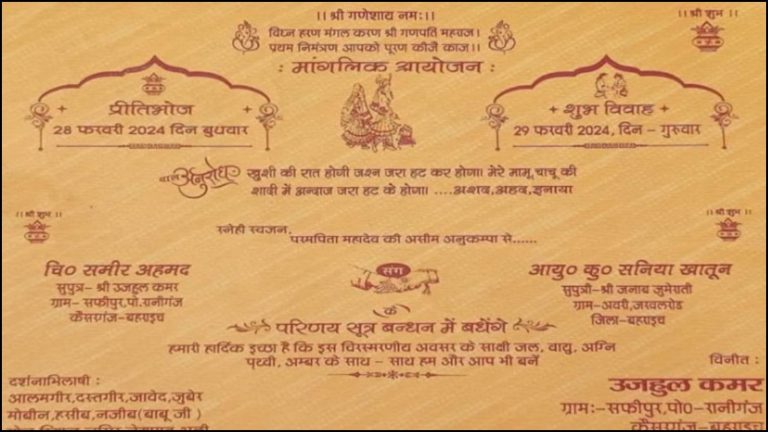 ।। श्री गणेशाय नमः।।
।। श्री शुभ ।।
विघ्न हरण मंगल करण श्री गणपति महाराज।
प्रथम निमंत्रण आपको पूरण कीजै काज।।
: मांगलिक आयोजन :
प्रीतिभोज
28 फरवरी 2024 दिन बुधवार
शुभ विवाह
29 फरवरी 2024, दिन – गुरुवार
बाल अनुरोध
खुशी की रात होगी जश्न जरा हट कर होगा। मेरे मामू,चाचू की
शादी में अन्दाज जरा हट के होगा। ....अशद,अहद,इनाया
।। श्री शुभ ।।
।। श्री शुभ ।।
स्नेही स्वजन,
परमपिता महादेव की असीम अनुकम्पा से......
चि० समीर अहमद
सुपुत्र– श्री उजहुल कमर
ग्राम– सफीपुर,पो.रानीगंज
कैसरगंज–बहराइच
संग
आयु० कु० सनिया खातून
सुपुत्री–श्री जनाब जुमेराती
ग्राम–अवरी,जरवलरोड
जिला–बहराइच
के
परिणय सूत्र बन्धन में बधेंगे
हमारी हार्दिक इच्छा है कि इस चिरस्मरणीय अवसर के साक्षी जल, वायु, अग्नि
पृथ्वी, अम्बर के साथ – साथ हम और आप भी बनें
दर्शनाभिलाषी :
आलमगीर,दस्तगीर,जावेद,जुबेर
मोबीन,हसीब,नजीब(बाबू जी )
विनीत :
उजहुल कमर
ग्रामः–सफीपुर,पो०–रानीगंज
कैसरगंज–बहराइच